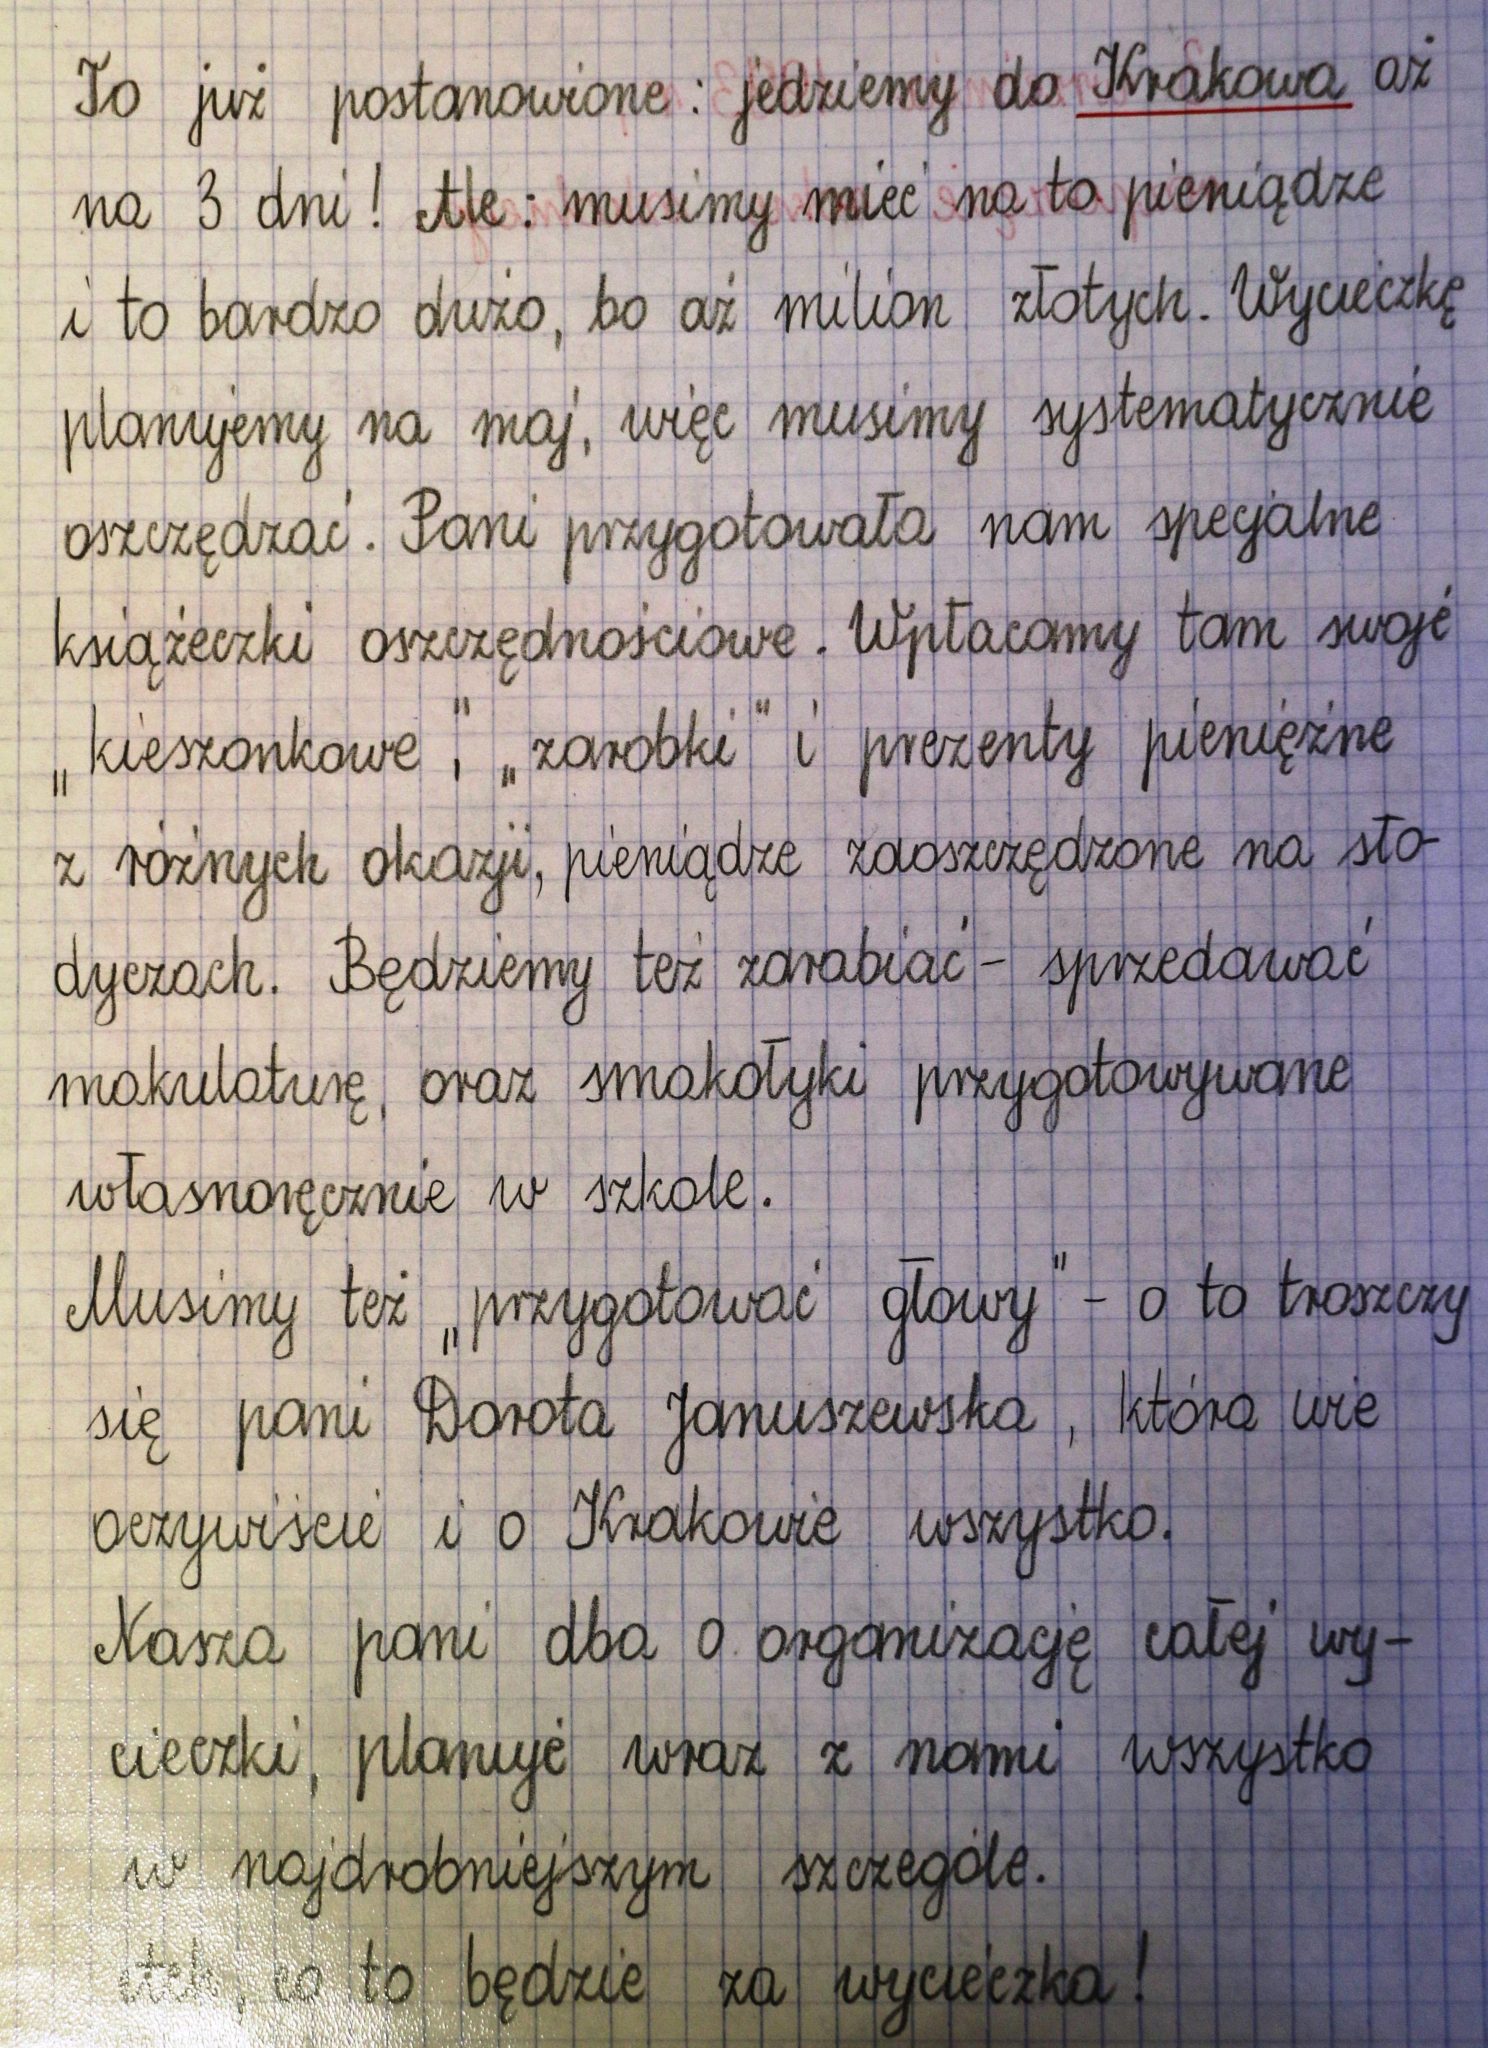 To już postanowione: jedziemy do Krakowa aż
na 3 dni! Ale: musimy mieć na to pieniądze
i to bardzo dużo, bo aż milion złotych. Wycieczkę
planujemy na maj, więc musimy systematycznie
oszczędzać. Pani przygotowała nam specjalne
książeczki oszczędnościowe. Wpłacamy tam swoje
„kieszonkowe”, „zarobki” i prezenty pieniężne
z różnych okazji, pieniądze zaoszczędzone na sło-
dyczach. Będziemy też zarabiać - sprzedawać
makulaturę, oraz smakołyki przygotowywane
własnoręcznie w szkole.
Musimy też „przygotować głowy” - o to troszczy
się pani Dorota Januszewska, która wie
oczywiście i o Krakowie wszystko.
Nasza pani dba o organizację całej wy-
cieczki, planuje wraz z nami wszystko
w najdrobniejszym szczególe.
Ach, co to będzie za wycieczka!